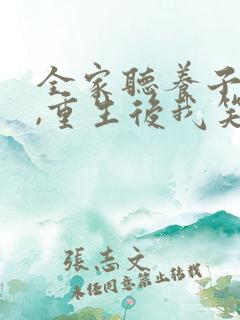 全家聽養子
,重生後我笑
張志文
未經同意禁止轉載